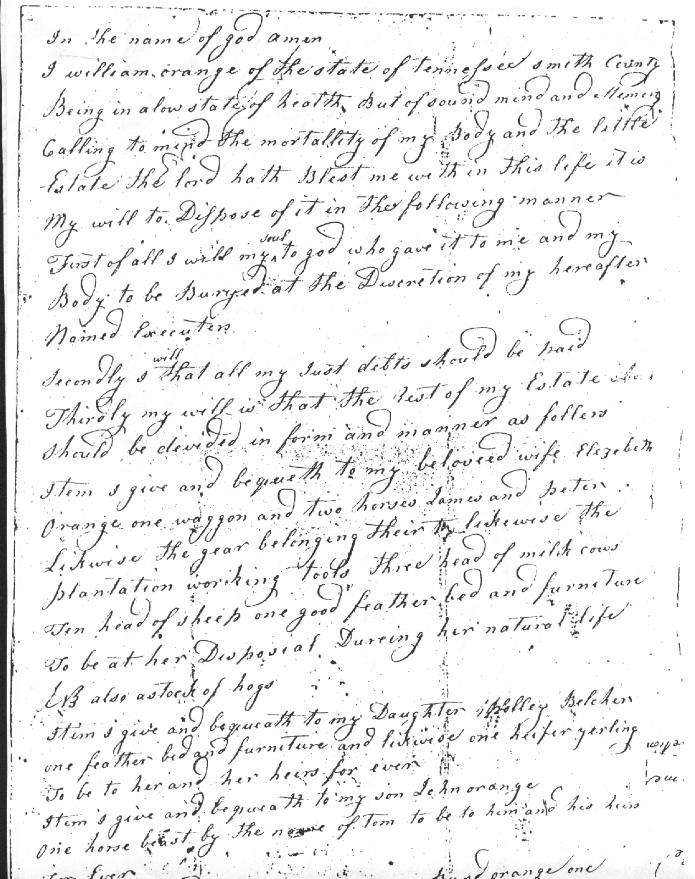 In the name of god amen
I william orange of the state of tennessee smith County
Being in a low state of health But of sound mind and Memory
Calling to mind the mortallity of my Body and the little
Estate the lord hath Blest me with in this life it is
My will to Dispose of it in the following manner
First of all I will my soul to god who gave it to me and my
Body to be Buryed at the Discretion of my hereafter
Named Executers
Secondly I will that all my Just debts should be paid
Thirdly my will is that the rest of my Estate
should be devided in form and manner as follers
Item I give and bequeth to my beloveed wife Elezebeth
Orange one waggon and two horses James and peter
Likwise the gear belonging their to likewise the
plantation working tools three head of milk cows
Ten head of sheep one good feather bed and furneture
To be at her Disposial Dureing her natural life
NB also a stock of hogs
Item I give and bequeath to my Daughter Polley Belcher
one feather bed and furneture and likwise one heifer yerling
To be to her and her heirs for ever
Item I give and bequeath to my son John orange
One horse beast by the name of tom to be to him and his heirs
for Ever
orange one